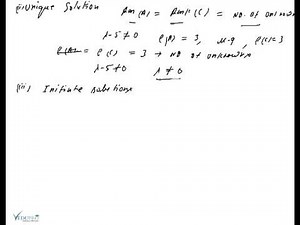 (ii) Unique Solution Rank (A) = Rank (C) = No. of unknowns
λ-5≠0 ρ(A) = 3, μ-9, ρ(C)=3
ρ(A) = ρ(C) = 3 → No of unknowns
λ-5≠0 λ≠0
(iii) Infinite solutions